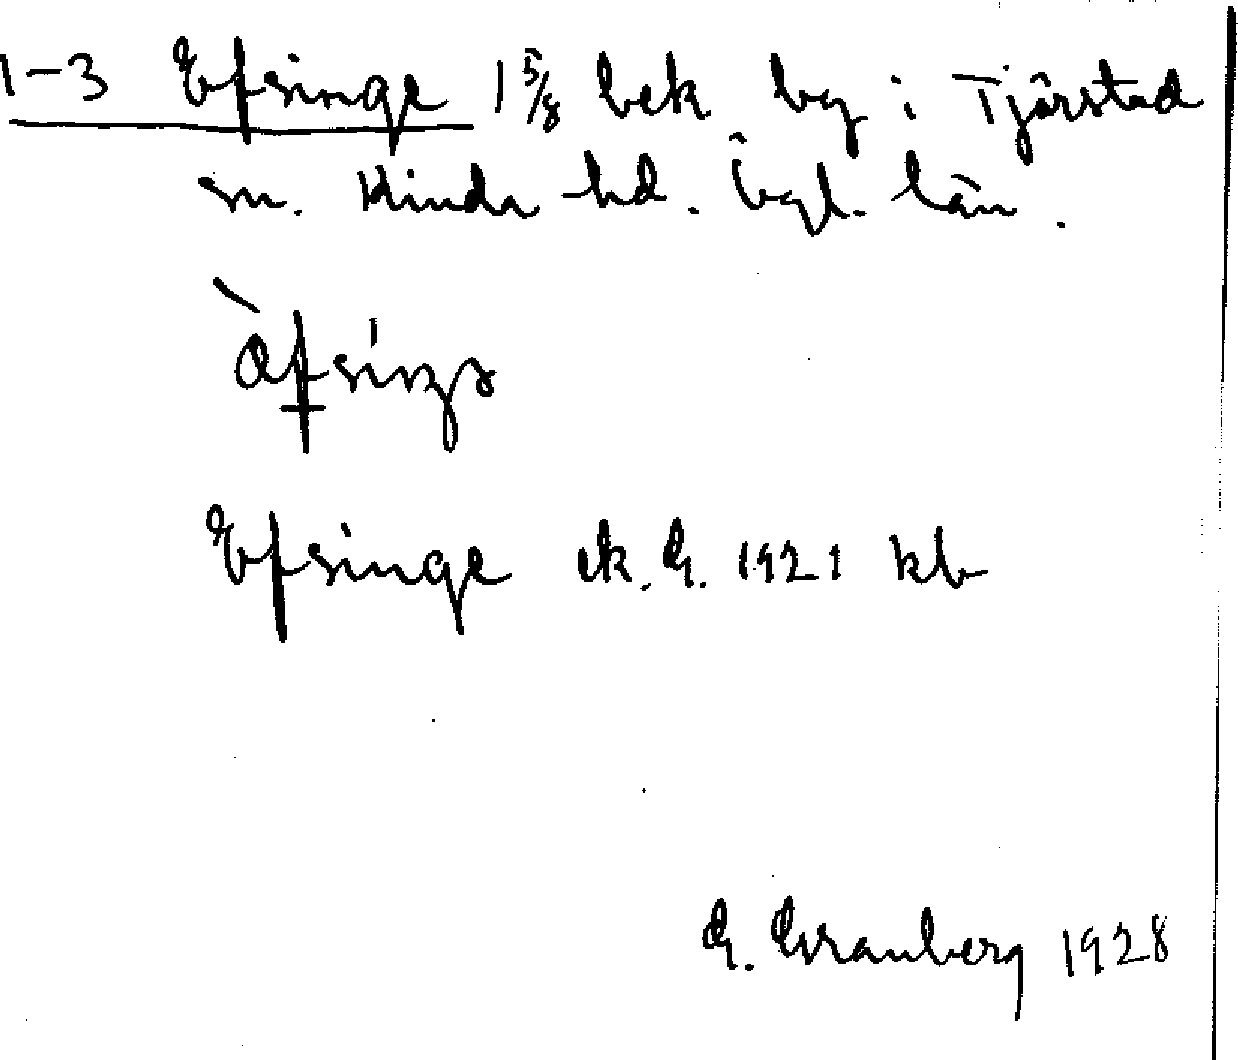 1-3 Efsinge 1 5/8 bek. by i Tjärstad
sn. Kinda hd. Ögl. län.
Efsinge ek. G. 1921 kb
G. Granberg 1928